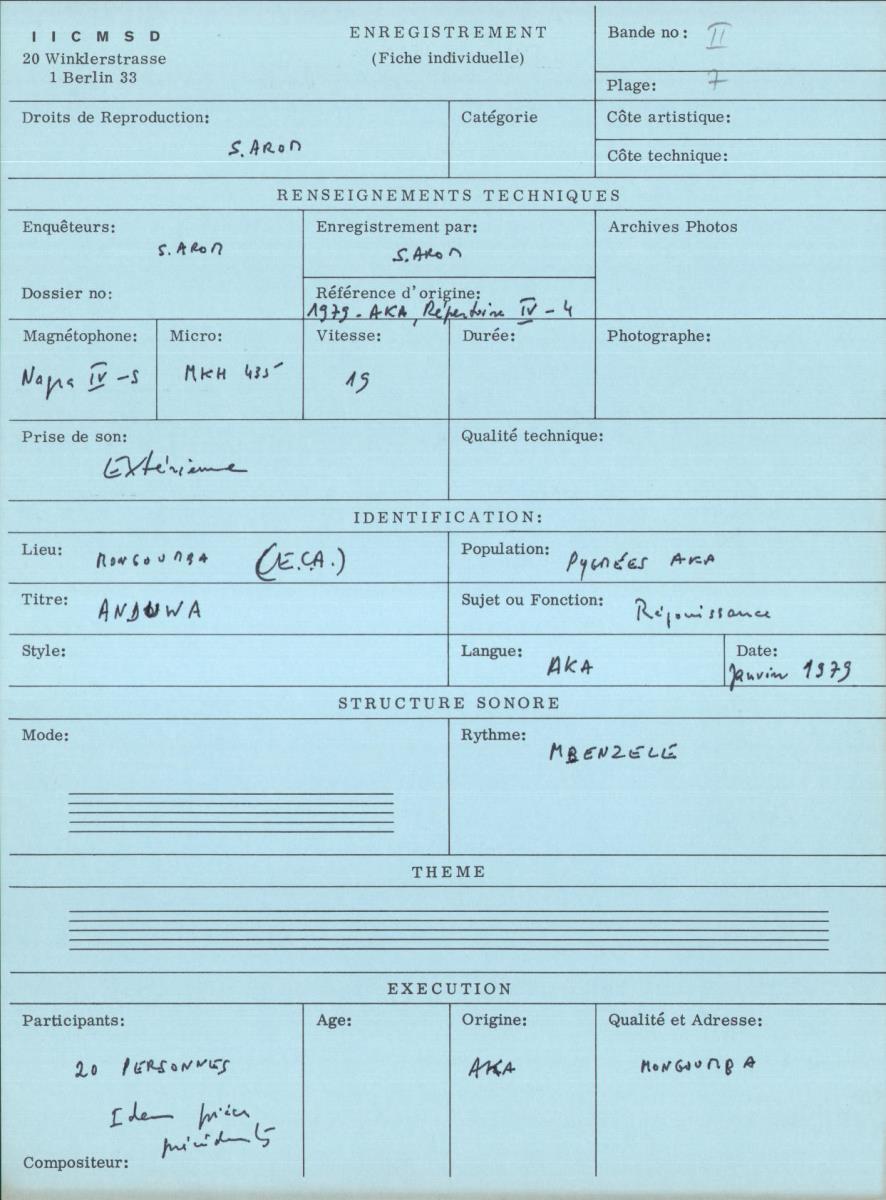 I I C M S D
20 Winklerstrasse
1 Berlin 33
ENREGISTREMENT
(Fiche individuelle)
Bande no: II
Plage: 7
Droits de Reproduction:
S. AROM
Catégorie
Côte artistique:
Côte technique:
RENSEIGNEMENTS TECHNIQUES
Enquêteurs:
S. AROM
Dossier no:
Enregistrement par:
S. AROM
Référence d'origine:
1979 - AKA, Répertoire IV - 4
Archives Photos
Magnétophone:
Nagra IV-S
Micro:
MKH 435
Vitesse:
19
Durée:
Photographe:
Prise de son:
Extérieure
Qualité technique:
IDENTIFICATION:
Lieu: MONGOUMBA (E.C.A.)
Population: PYGMÉES AKA
Titre: ANDUWA
Sujet ou Fonction: Réjouissance
Style:
Langue: AKA
Date:
Janvier 1979
STRUCTURE SONORE
Mode:
Rythme:
MBENZELE
THEME
EXECUTION
Participants:
20 PERSONNES
Idem pièces
précédentes
Compositeur:
Age:
Origine:
AKA
Qualité et Adresse:
MONGOUMBA